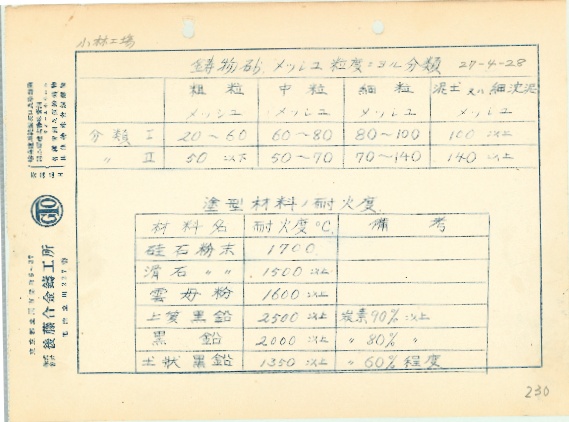 小林工場
鋳物砂メッシュ粒度ニヨル分類 27-4-28
粗粒 中粒 細粒 泥土又ハ細沈泥
メッシュ メッシュ メッシュ メッシュ
分類 I 20~60 60~80 80~100 100以上
〃 II 50以下 50~70 70~140 140以上
塗型材料ノ耐火度
材料名 耐火度℃ 備考
硅石粉末 1700
滑石〃〃 1500以上
雲母粉 1600以上
上質黒鉛 2500以上 炭素90%以上
黒鉛 2000以上 〃80%〃
土状黒鉛 1350以上 〃60%程度
後藤合金鋳工所
230